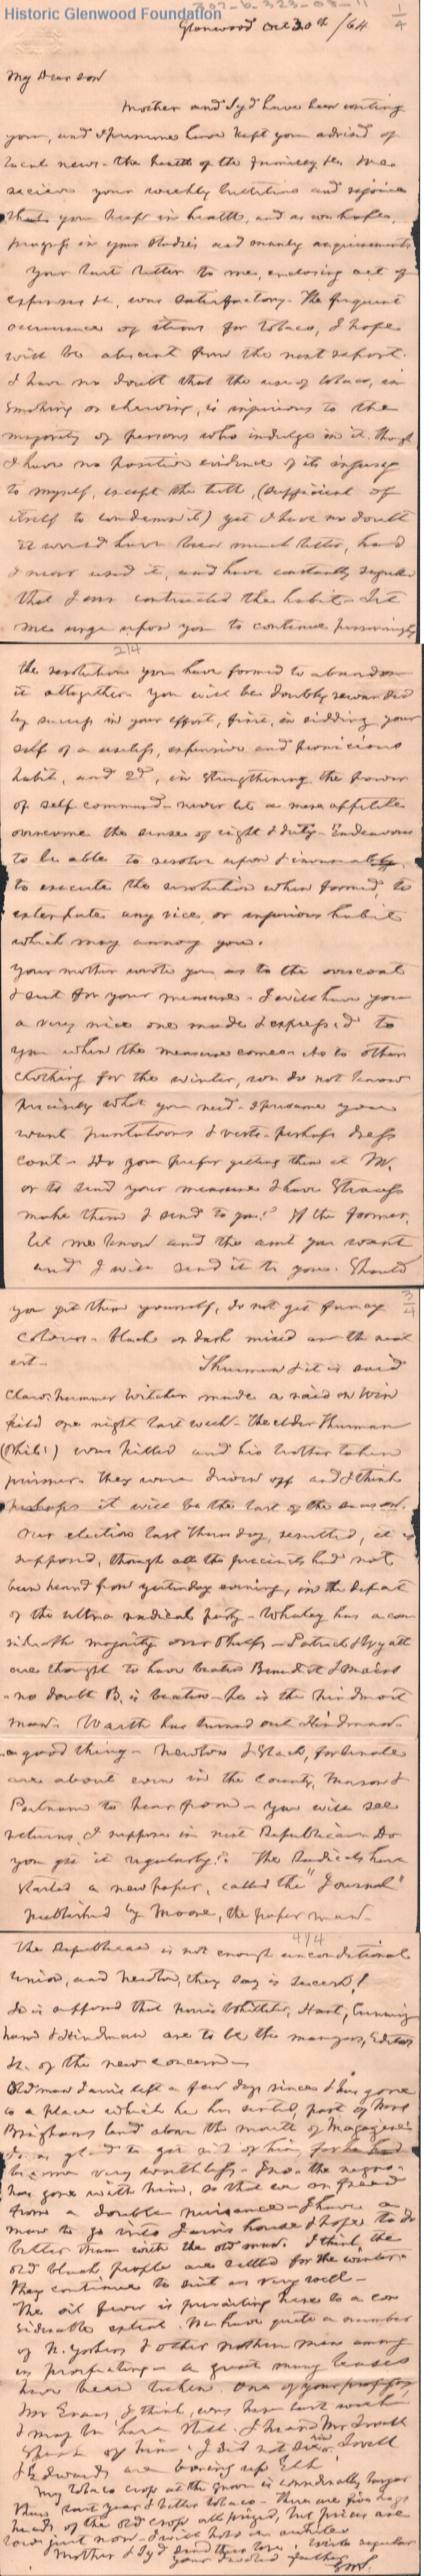 Historic Glenwood Foundation
207-b-323-08-11
Glenwood Oct 30th /64
1/4
My Dear son
Mother and Syd have been writing
you, and I presume have kept you advised of
local news - the health of the family &c. We
recieve your weekly bulletins and rejoice
that you keep in health, and as we hope,
progress in your studies and manly acquirements
Your last letter to me, enclosing act of
expenses &c, was satisfactory. The frequent
occurrence of items for Tobaco, I hope
will be abscent from the next report.
I have no doubt that the use of tobaco, in
smoking or chewing, is injurious to the
majority of persons who indulge in it. Though
I have no positive evidence of its injury
to myself, except the teeth, (sufficient of
itself to condemn it) yet I have no doubt
it would have been much better, had
I never used it, and have constantly regretted
that I ever contracted the habit - Let
me urge upon you to continue perseveringly
2/4
the resolution you have formed to abandon
it altogether. You will be doubly rewarded
by success in your effort, first, in ridding your
self of a useless, expensive and pernicious
habit, and 2d, in strengthening the power
of self command - never let a mere appetite
overcome the sense of right & duty - Endeavour
to be able to resolve upon &
to execute the resolution when formed, to
extirpate any vice, or injurious habit
which may annoy you.
Your mother wrote you as to the overcoat
& sent for your measure - I will have you
a very nice one made & expressd to
you when the measure comes. As to other
clothing for the winter, we do not know
precisely what you need - I presume you
want pantaloons & vests - perhaps dress
coat - Do you prefer getting them at M.
or to send your measure & have Strauss
make them & send to you? If the former,
let me know and the amt you want
and I will send it to you. Should
3/4
you get them yourself, do not get fancy
colours - black or dark mixed are the neat
est - Thurman & it is said
Clawhammer Witcher made a raid on Win
field one night last week - The elder Thurman
(Phil!) was killed and his brother taken
prisoner. they were driven off and I think
perhaps it will be the last of the season.
Our election last Thursday, resulted, it is
supposed, though all the precincts had not
been heard from yesterday evening, in the defeat
of the ultra radical party - Whaley has a con
siderable majority over Phelps - Patrick & Wyatt
are thought to have beaten Benedict &
- no doubt B. is beaten - he is the hindmost
man. Warth has turned out Hindman -
a good thing - Newton & Slack, for Senate
are about even in the County, Mason &
Putnam to hear from - You will see
returns, I suppose in next Republican - Do
you get it regularly? The Radicals have
started a new paper, called the "Journal"
published by Moore, the paper man -
4/4
The Republican is not enough unconditional
Union, and Newton, they say is secesh!
It is supposed that Whittaker, Hart, Cunning
ham & Hindman are to be the managers, Editors
&c of the new concern -
Old man Jarvis left a few days since & has gone
to a place which he has rented, part of
Brighams land above the mouth of
I am glad to get rid of him, for he had
become very worthless - the negro -
has gone with him, so that we are freed
from a double nuisance - I have a
man to go into Jarvis house & hope to do
better than with the old man. I think the
old black people are settled for the winter.
They continue to suit us very well -
The oil fever is prevailing here to a con
siderable extent. We have quite a number
of N. Yorkers & other northern men among
us prospecting - a great many leases
have been taken. One of your professors
Mr Evans, I think, was here last week
& may be here still. I heard Mr Lovell
speak of him - I did not see him. Lovell
& Edwards are boring up Elk!
My tobaco crop at the Green is considerably larger
than last year & better tobaco - There are five hogs
heads of the old crop all prized, but prices are
low just now - I will hold on awhile
Mother & Syd send their love. Write regular
your devoted father